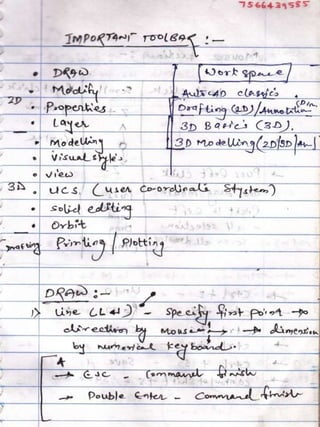 7566439585
IMPORTANT TOOLBAR :-
• DRAW
• Modify
2D • Properties
• Layer
• Modelling
• Visual styles
• View
3D • UCS (user co-ordinate system)
• Solid editing
• Orbit
Drafting Printing / Plotting
Work space
AutoCAD classics.
Drafting (2D)/Annotation (Dim
3D Basic's (3D).
3D Modelling (2D/3D/An)
DRAW :-
1) Line (L↵) - Specify first point →
direction by Mouse → dimension
by numerical keyboard.
→ ESC - Command finish
→ Double Enter - Command finish